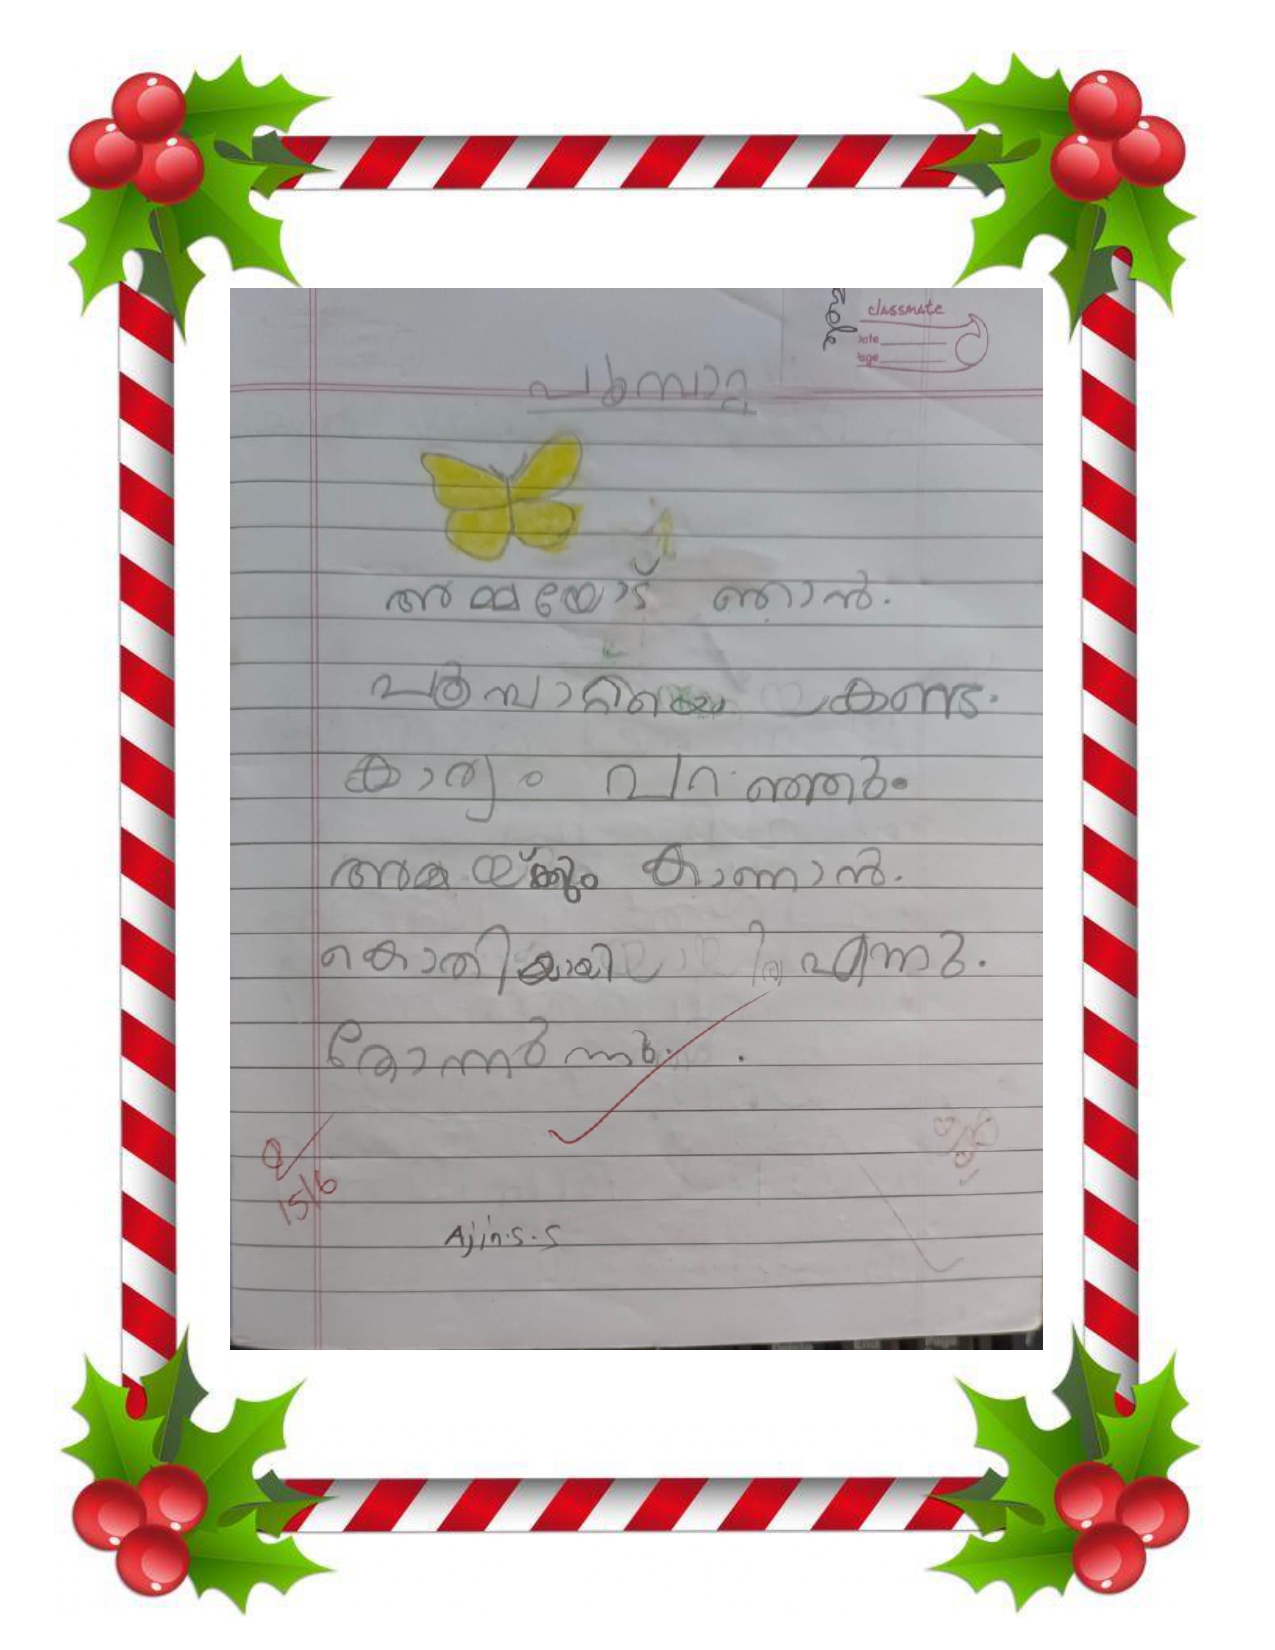 classmate
Date
Page
പൂമ്പാറ്റ
അമ്മയോട് ഞാൻ.
പൂമ്പാറ്റയെ കണ്ട.
കാര്യം പറഞ്ഞു.
അമ്മയ്ക്കും കാണാൻ.
കൊതിയായി എന്നു.
തോന്നുന്നു.
15/6
Ajin.S.S